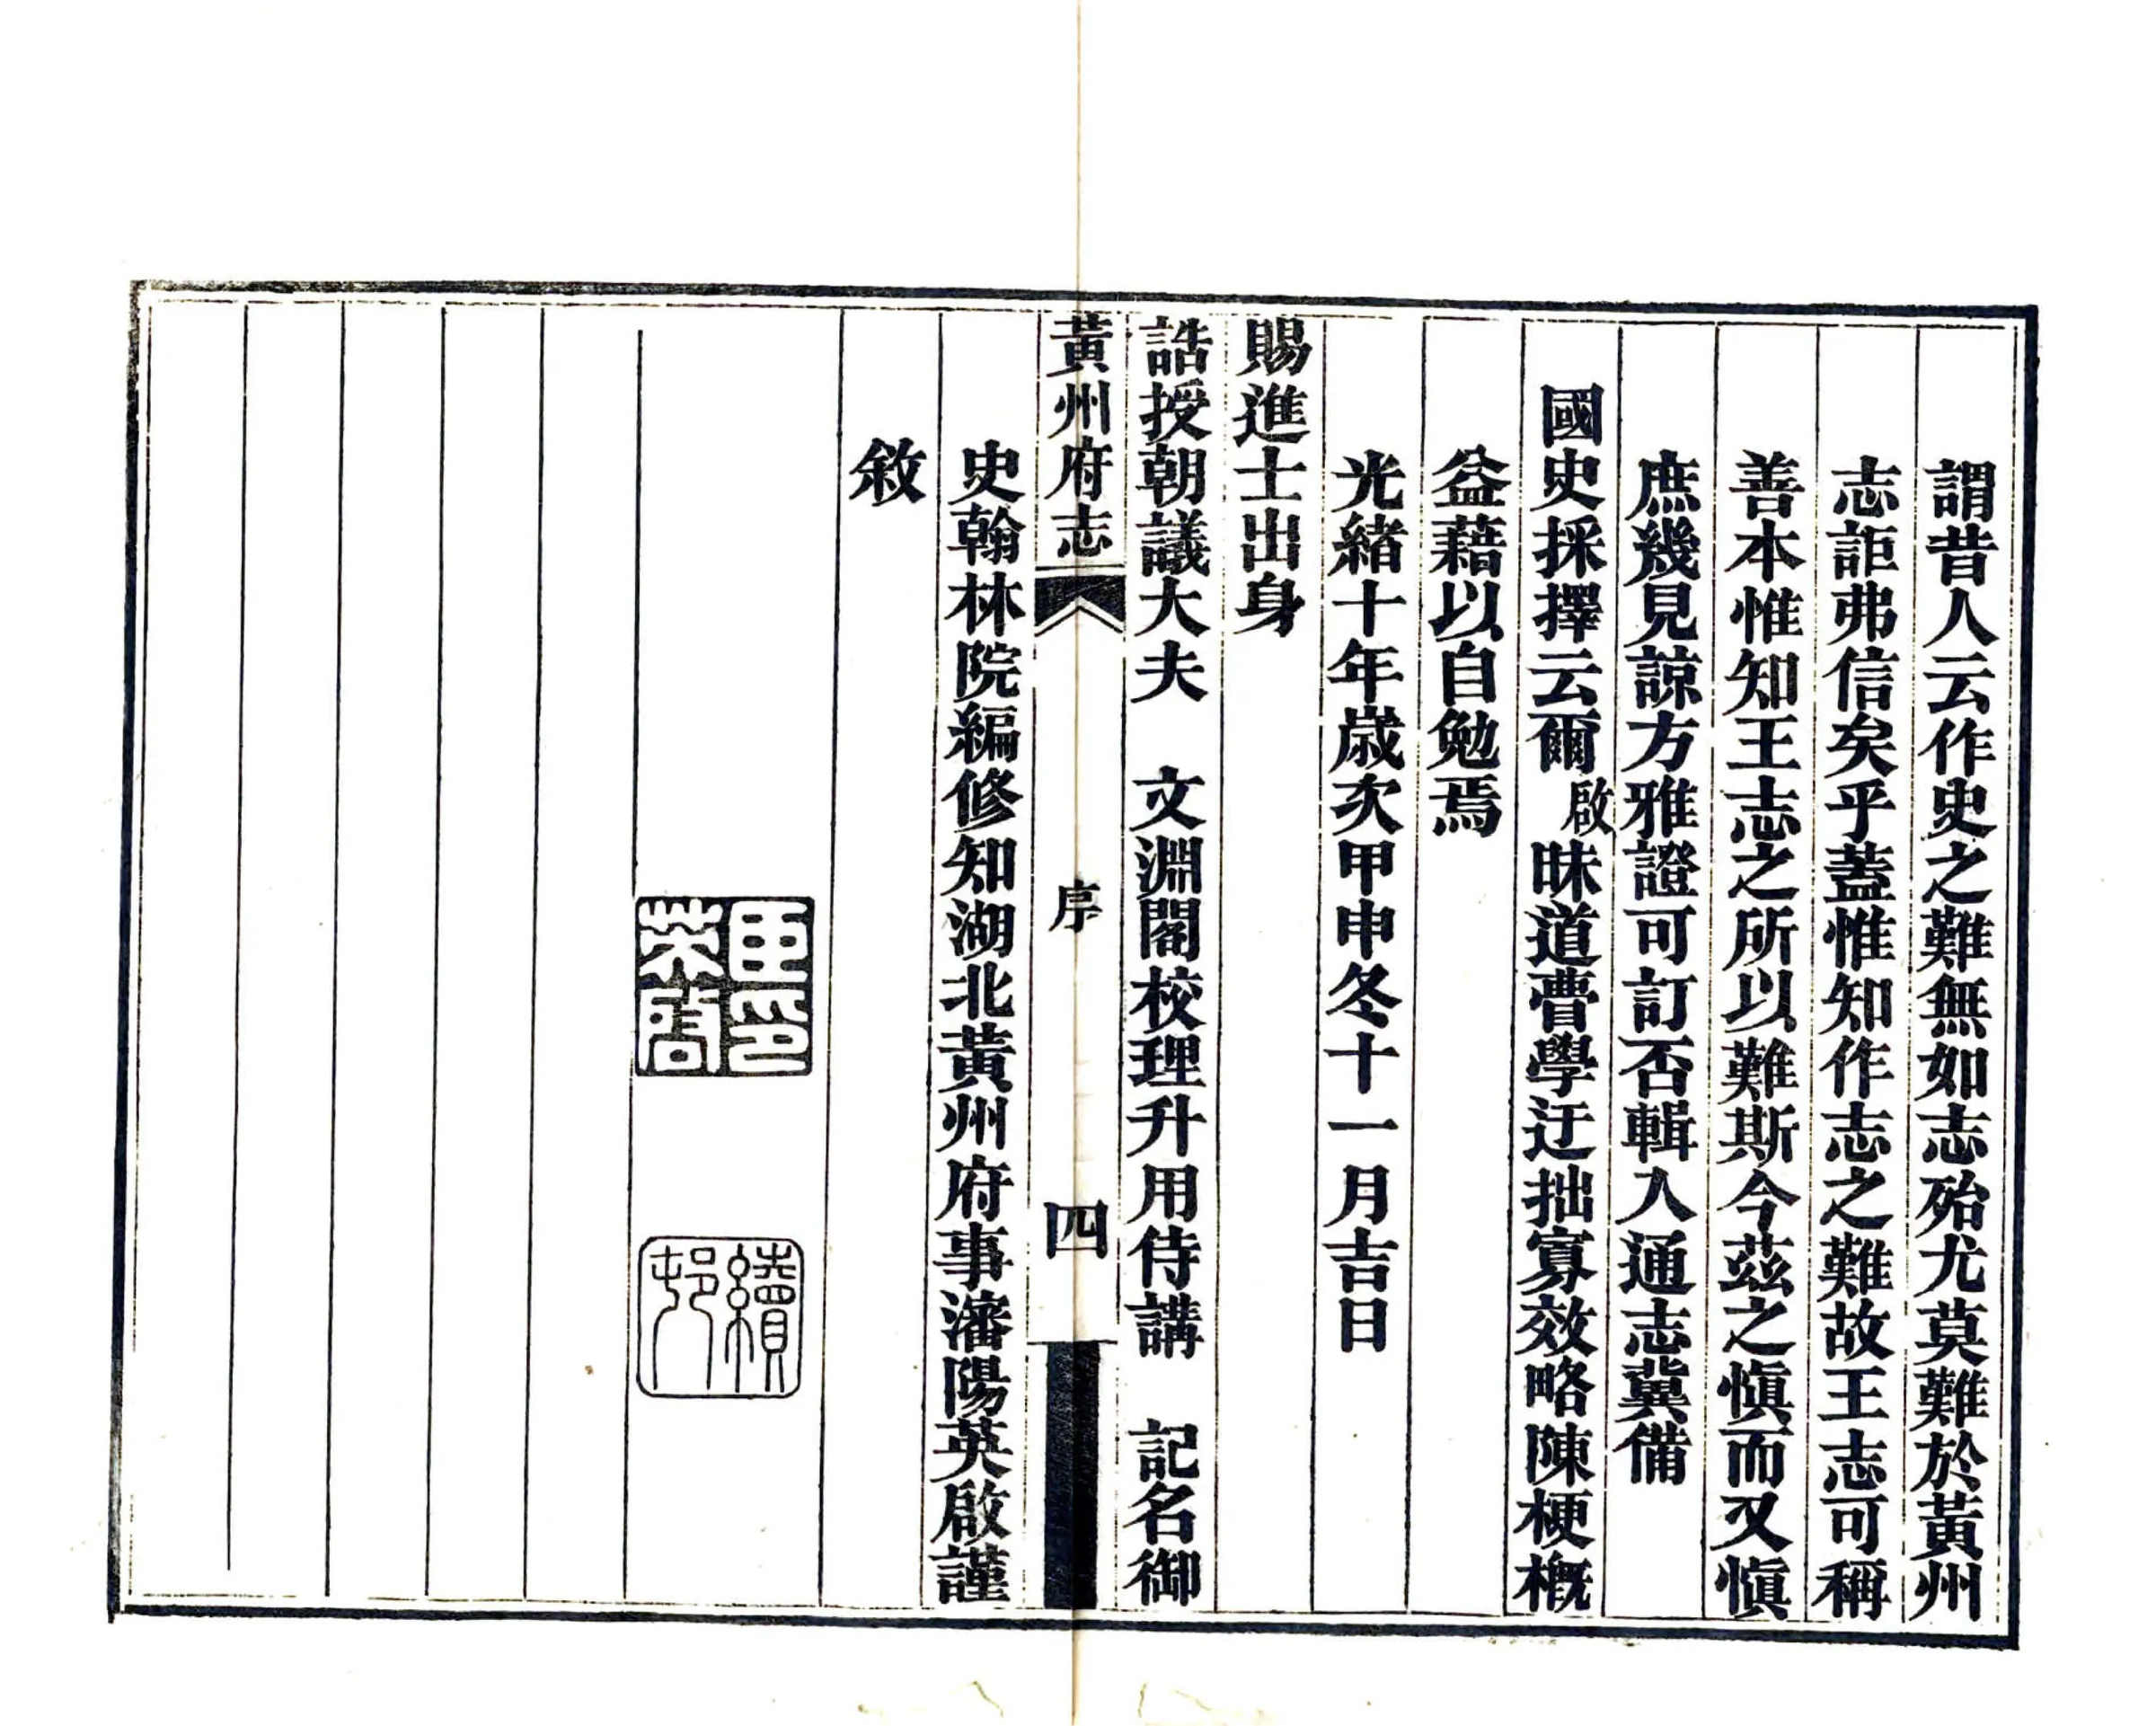 謂昔人云作史之難無如志殆尤莫難於黃州
志詎弗信矣乎蓋惟知作志之難故王志可稱
善本惟知王志之所以難斯今茲之愼而又愼
庶幾見諒方雅證可訂否輯入通志冀備
國史採擇云爾啟昧道瞢學迂拙寡效略陳梗槪
益藉以自勉焉
光緒十年歲次甲申冬十一月吉日
賜進士出身
誥授朝議大夫　文淵閣校理升用侍講　記名御
黃州府志　序　四
史翰林院編修知湖北黃州府事瀋陽英啟謹
敘
臣印英啟
續邨